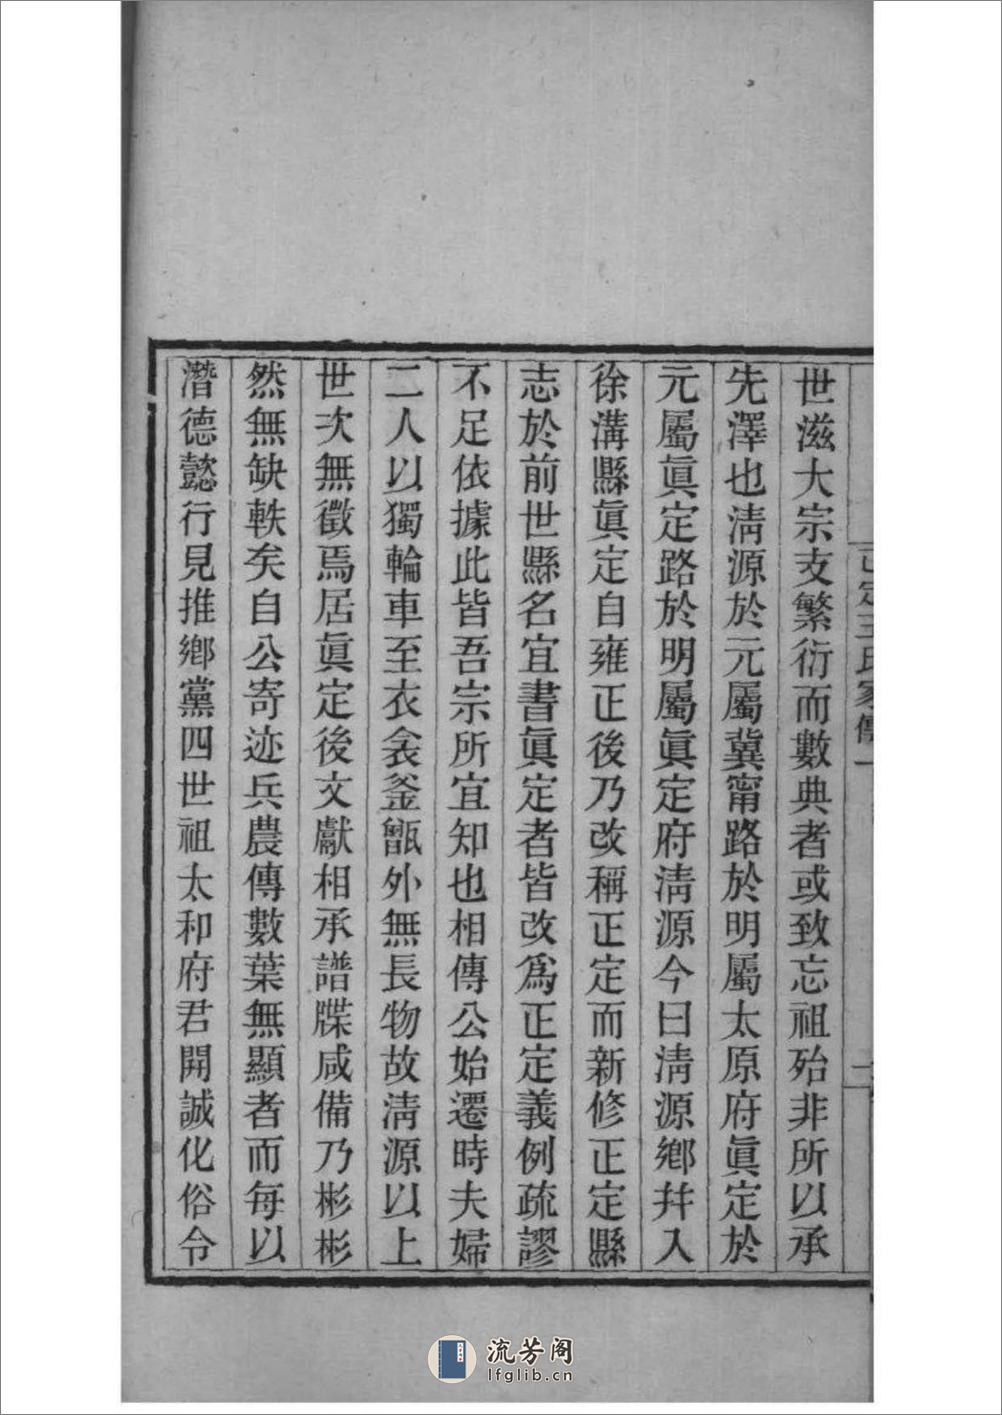 世滋大宗支繁衍而數典者或致忘祖殆非所以承
先澤也淸源於元屬冀甯路於明屬太原府眞定於
元屬眞定路於明屬眞定府淸源今曰淸源鄉幷入
徐溝縣眞定自雍正後乃改稱正定而新修正定縣
志於前世縣名宜書眞定者皆改爲正定義例疏謬
不足依據此皆吾宗所宜知也相傳公始遷時夫婦
二人以獨輪車至衣衾釜甑外無長物故淸源以上
世次無徵焉居眞定後文獻相承譜牒咸備乃彬彬
然無缺軼矣自公寄迹兵農傳數葉無顯者而每以
潛德懿行見推鄉黨四世祖太和府君開誠化俗令
流芳阁
lfglib.cn